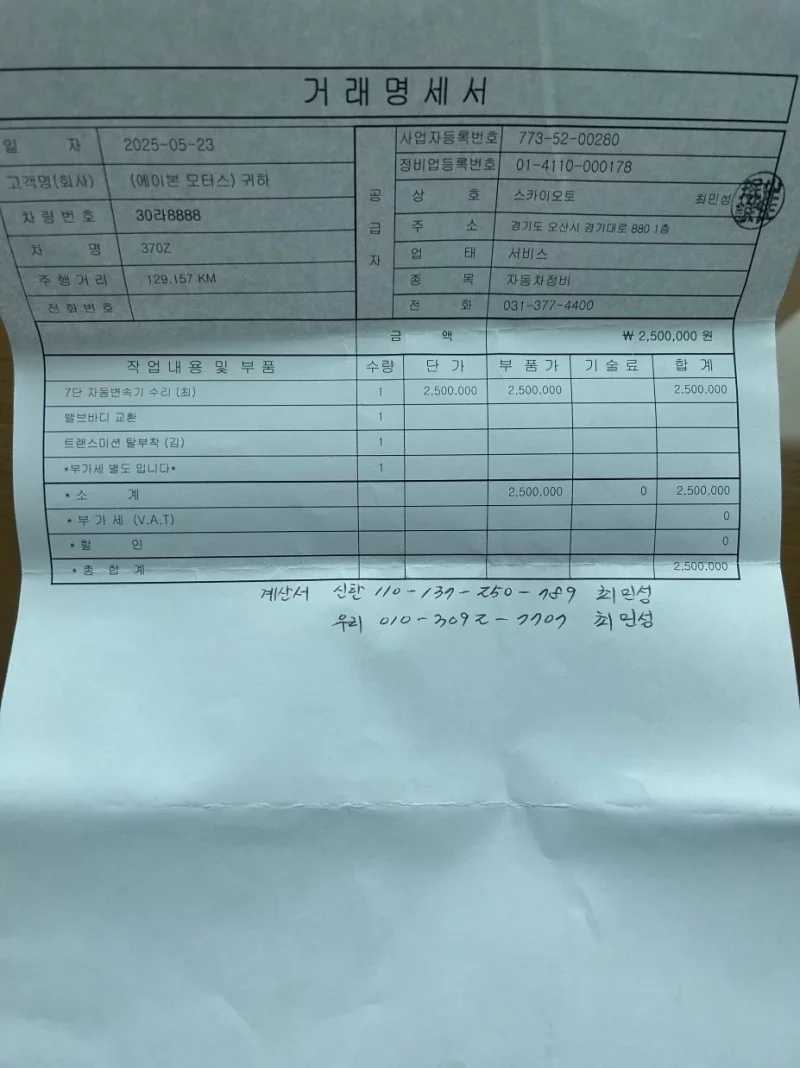 거래명세서
일 자 2025-05-23
고객명(회사) (에이본 모터스) 귀하
차량번호 30라8888
차 명 370Z
주행거리 129,157 KM
전화번호
공급자
사업자등록번호 773-52-00280
정비업등록번호 01-4110-000178
상 호 스카이오토 최민성
주 소 경기도 오산시 경기대로 880 1층
업 태 서비스
종 목 자동차정비
전 화 031-377-4400
금 액 ₩ 2,500,000 원
작업내용 및 부품 수량 단가 부품가 기술료 합계
7단 자동변속기 수리 (최) 1 2,500,000 2,500,000 2,500,000
밸브바디 교환 1
트랜스미션 탈부착 (김) 1
*부가세 별도 입니다* 1
* 소 계 2,500,000 0 2,500,000
* 부 가 세 (V.A.T) 0
* 할 인 0
* 총 합 계 2,500,000
계산서 신한 110-137-250-789 최민성
우리 010-3092-7707 최민성